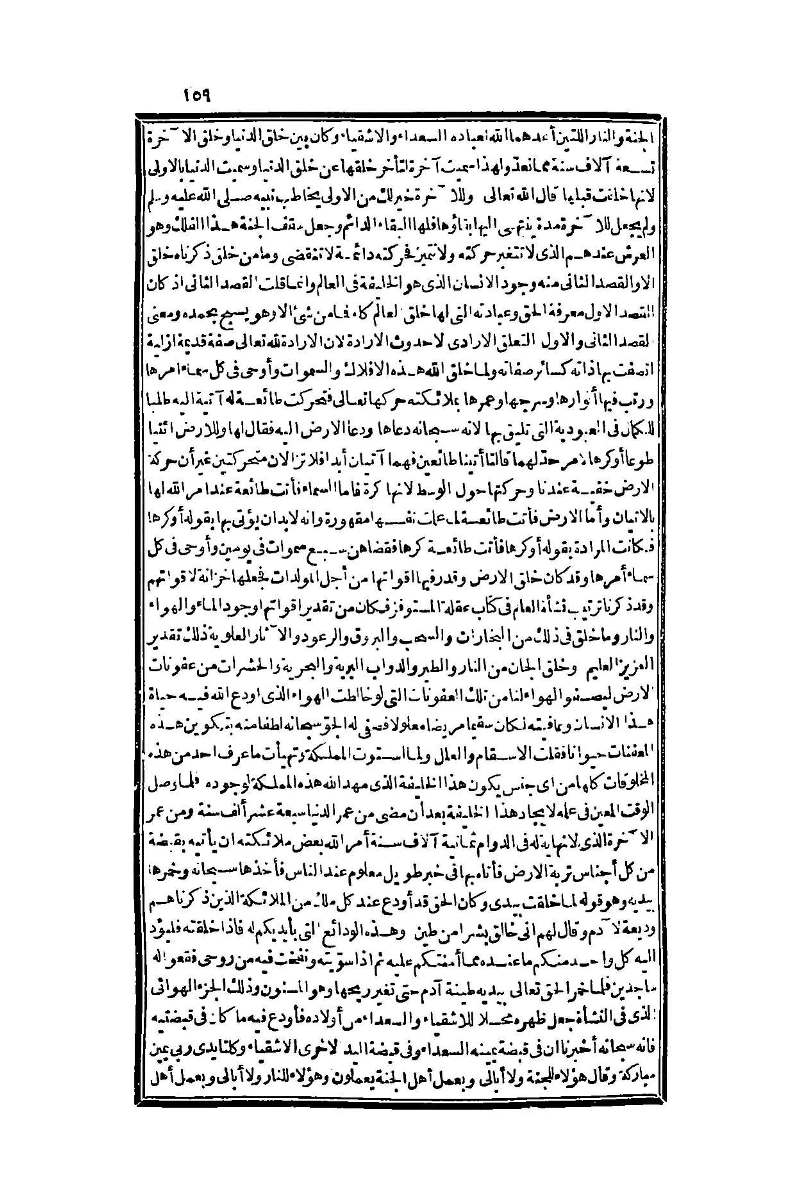 ١٥٩
الجنة والنار اللتين أعدهما الله لعباده السعداء والاشقياء وكان بين خلق الدنيا وخلق الآخرة
تسعة آلاف سنة مما تعد ولهذا سميت آخرة لتأخر خلقها عن خلق الدنيا وسميت الدنيا بالاولى
لانها خلقت قبلها قال الله تعالى وللآخرة خير لك من الاولى يخاطب نبيه صلى الله عليه وسلم
ولم يجعل للآخرة مدة ينتهى اليها بقاؤها فلها البقاء الدائم وجعل سقف الجنة هذا الفلك وهو
العرش عندهم الذى لا تتعين حركته ولا تتميز فحركته دائمة لا تنقضى وما من خلق ذكرناه خلق
الا والقصد الثانى منه وجود الانسان الذى هو الخليفة فى العالم وانما قلت القصد الثانى اذ كان
القصد الاول معرفة الحق وعبادته التى لها خلق العالم كله فما من شئ الا وهو يسبح بحمده ومعنى
القصد الثانى والاول التعلق الارادى لا حدوث الارادة لان الارادة لله تعالى صفة قديمة ازلية
اتصفت بها ذاته كسائر صفاته ولما خلق الله هذه الافلاك والسموات وأوحى فى كل سماء امرها
ورتب فيها أنوارها وسرجها وعمرها بملائكته حركها تعالى فتحركت طائعة له آتية اليه طلبا
للكمال فى العبودية التى تليق بها لانه سبحانه دعاها ودعا الارض اليه فقال لها وللارض ائتيا
طوعا أو كرها لامر حد لهما قالتا أتينا طائعين فهما آتيان أبدا فلا تزالان متحركتين غير أن حركة
الارض خفية عندنا وحركتها حول الوسط لانها كرة فاما السماء فأتت طائعة عند امر الله لها
بالاتيان وأما الارض فأتت طائعة لما علمت نفسها مقهورة وانه لابد ان يؤتى بها بقوله أو كرها
فكانت المرادة بقوله أو كرها فأتت طائعة كرها فقضاهن سبع سموات فى يومين وأوحى فى كل
سماء أمرها وقد كان خلق الارض وقدر فيها اقواتها من أجل المولدات فجعلها خزانة لاقواتهم
وقد ذكرنا ترتيب نشأة العالم فى كتاب عقلة المستوفز فكان من تقدير اقواتها وجود الماء والهواء
والنار وما خلق فى ذلك من البخارات والسحب والبروق والرعود والآثار العلوية ذلك تقدير
العزيز العليم وخلق الجان من النار والطير والدواب البرية والبحرية والحشرات من عفونات
الارض ليصفو الهواء لنا من تلك العفونات التى لو خالطت الهواء الذى اودع الله فيه حياة
هذا الانسان وعافيته لكان سقيما مريضا معلولا فصفى له الجو سبحانه لطفا منه بتكوين هذه
العفنات حيوانا فقلت الاسقام والعلل ولما استوت المملكة وتهيأت ما عرف احد من هذه
المخلوقات كلها من اى جنس يكون هذا الخليفة الذى مهد الله هذه المملكة لوجوده فلما وصل
الوقت المعين فى علمه لايجاد هذا الخليفة بعد أن مضى من عمر الدنيا سبعة عشر ألف سنة ومن عمر
الآخرة الذى لا نهاية له فى الدوام ثمانية آلاف سنة أمر الله بعض ملائكته ان يأتيه بقبضة
من كل أجناس تربة الارض فأتاه بها فى خبر طويل معلوم عند الناس فأخذها سبحانه وخمرها
بيديه وهو قوله لما خلقت بيدى وكان الحق قد أودع عند كل ملك من الملائكة الذين ذكرناهم
وديعة لآدم وقال لهم انى خالق بشرا من طين وهذه الودائع التى بأيديكم له فاذا خلقته فليؤد
اليه كل واحد منكم ما عنده مما أمنتكم عليه ثم اذا سويته ونفخت فيه من روحى فقعوا له
ساجدين فلما خمر الحق تعالى بيديه طينة آدم حتى تغير ريحها وهو المسنون وذلك الجزء الهوائى
الذى فى النشأة جعل ظهره محلا للاشقياء والسعداء من أولاده فأودع فيه ما كان فى قبضتيه
فانه سبحانه أخبرنا ان فى قبضة يمينه السعداء وفى قبضة اليد الاخرى الاشقياء وكلتا يدى ربى يمين
مباركة وقال هؤلاء للجنة ولا أبالى وبعمل أهل الجنة يعملون وهؤلاء للنار ولا أبالى وبعمل أهل